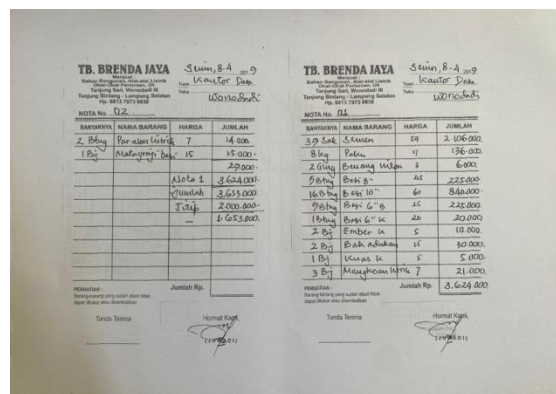 TB. BRENDA JAYA
Menjual :
Bahan Bangunan, Alat-alat Listrik
Obat-Obat Pertanian, Dll
Tanjung Sari, Wonodadi III
Tanjung Bintang - Lampung Selatan
Hp. 0813 7973 9838
Senin, 8-4 2019
Tuan Kantor Desa
Toko
Wonodadi
NOTA No. 02
BANYAKNYA NAMA BARANG HARGA JUMLAH
2 Btng Paralon listrik 7 14.000
1 Bj 15 15.000.
29.000.
Nota 1 3.624.000
Jumlah 3.653.000.
Titip 2.000.000.
— 1.653.000.
PERHATIAN : Jumlah Rp.
Barang-barang yang sudah dibeli tidak
dapat ditukar atau dikembalikan
Tanda Terima Hormat Kami,
TB. BRENDA JAYA
Menjual :
Bahan Bangunan, Alat-alat Listrik
Obat-Obat Pertanian, Dll
Tanjung Sari, Wonodadi III
Tanjung Bintang - Lampung Selatan
Hp. 0813 7973 9838
Senin, 8-4 2019
Tuan Kantor Desa
Toko
Wonodadi
NOTA No. 01
BANYAKNYA NAMA BARANG HARGA JUMLAH
39 Sak Semen 54 2.106.000
8 kg Paku 17 136.000
2 Glng Benang nilon 3 6.000
5 Btng Besi 8" 45 225.000
16 Btng Besi 10" 60 840.000
9 Btng Besi 6" B 25 225.000
1 Btng Besi 6" K 20 20.000
2 Bj Ember K 5 10.000
2 Bj Bak adukan 15 30.000
1 Bj Kuas K 5 5.000
3 Bj 7 21.000
PERHATIAN : Jumlah Rp. 3.624.000
Barang-barang yang sudah dibeli tidak
dapat ditukar atau dikembalikan
Tanda Terima Hormat Kami,